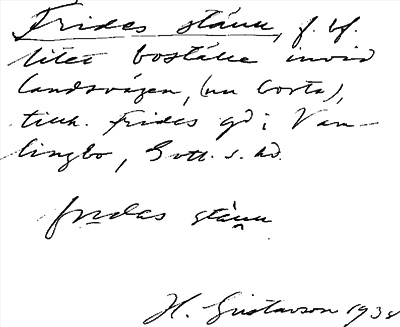 Frides stånn, f. bf.
litet boställe invid
landsvägen, (nu borta),
tillh. Frides gd i Van-
lingbo, Gotl. s. hd.
fridas stånn
H. Gustavson 1938